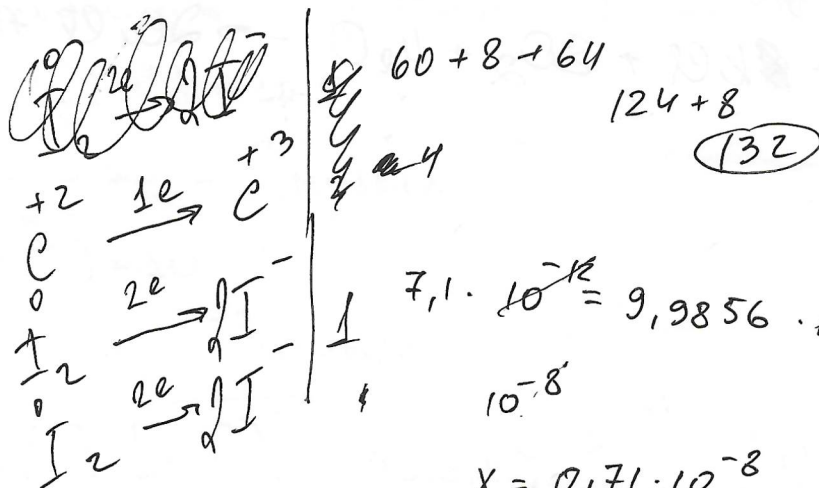 60 + 8 + 64
124 + 8
132
+2 1e +3
C → C
4
0 2e
I2 → 2I⁻ 1
0 2e
I2 → 2I⁻
7,1 · 10⁻¹² = 9,9856 ·
10⁻⁸
X = 0,71 · 10⁻⁸